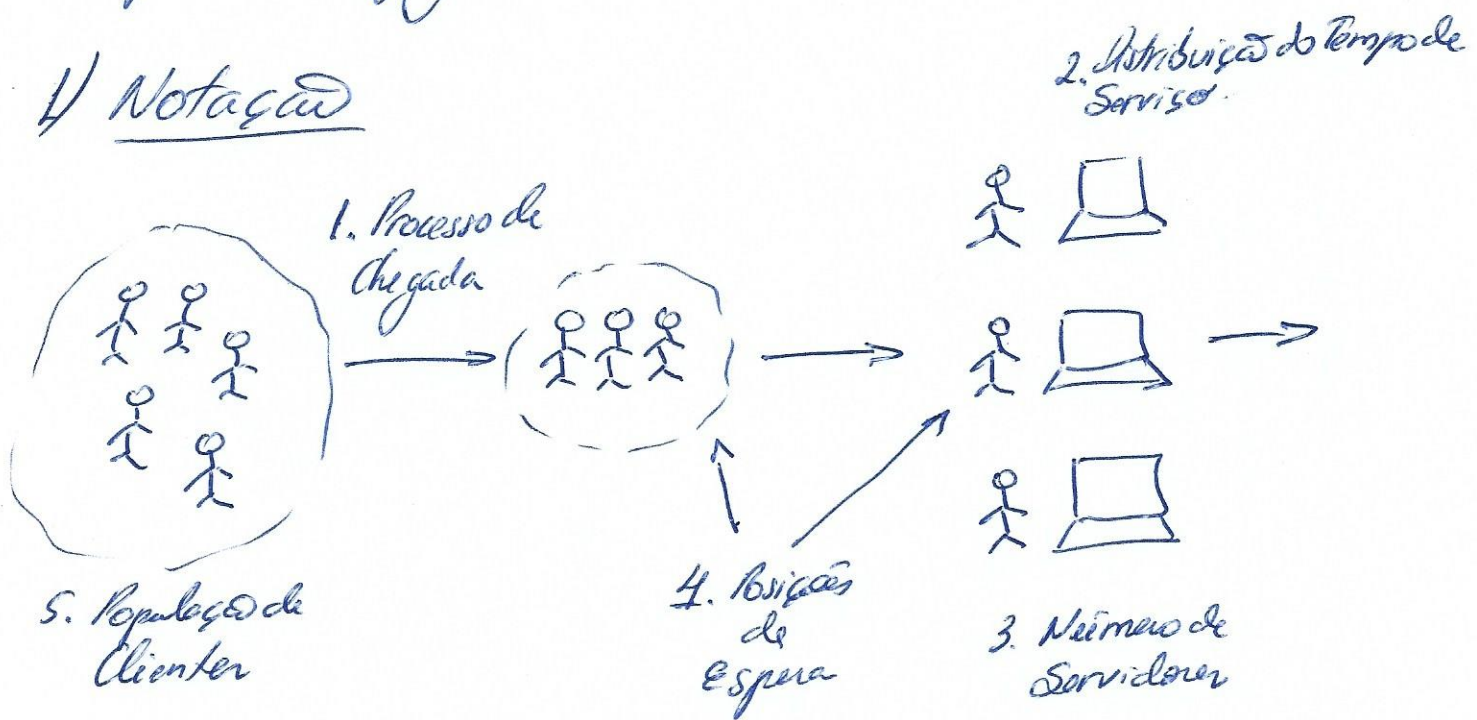 1) Notação
2. Distribuição do Tempo de
Serviço.
1. Processo de
Chegada
5. População de
Clientes
4. Posições
de
Espera
3. Número de
Servidores